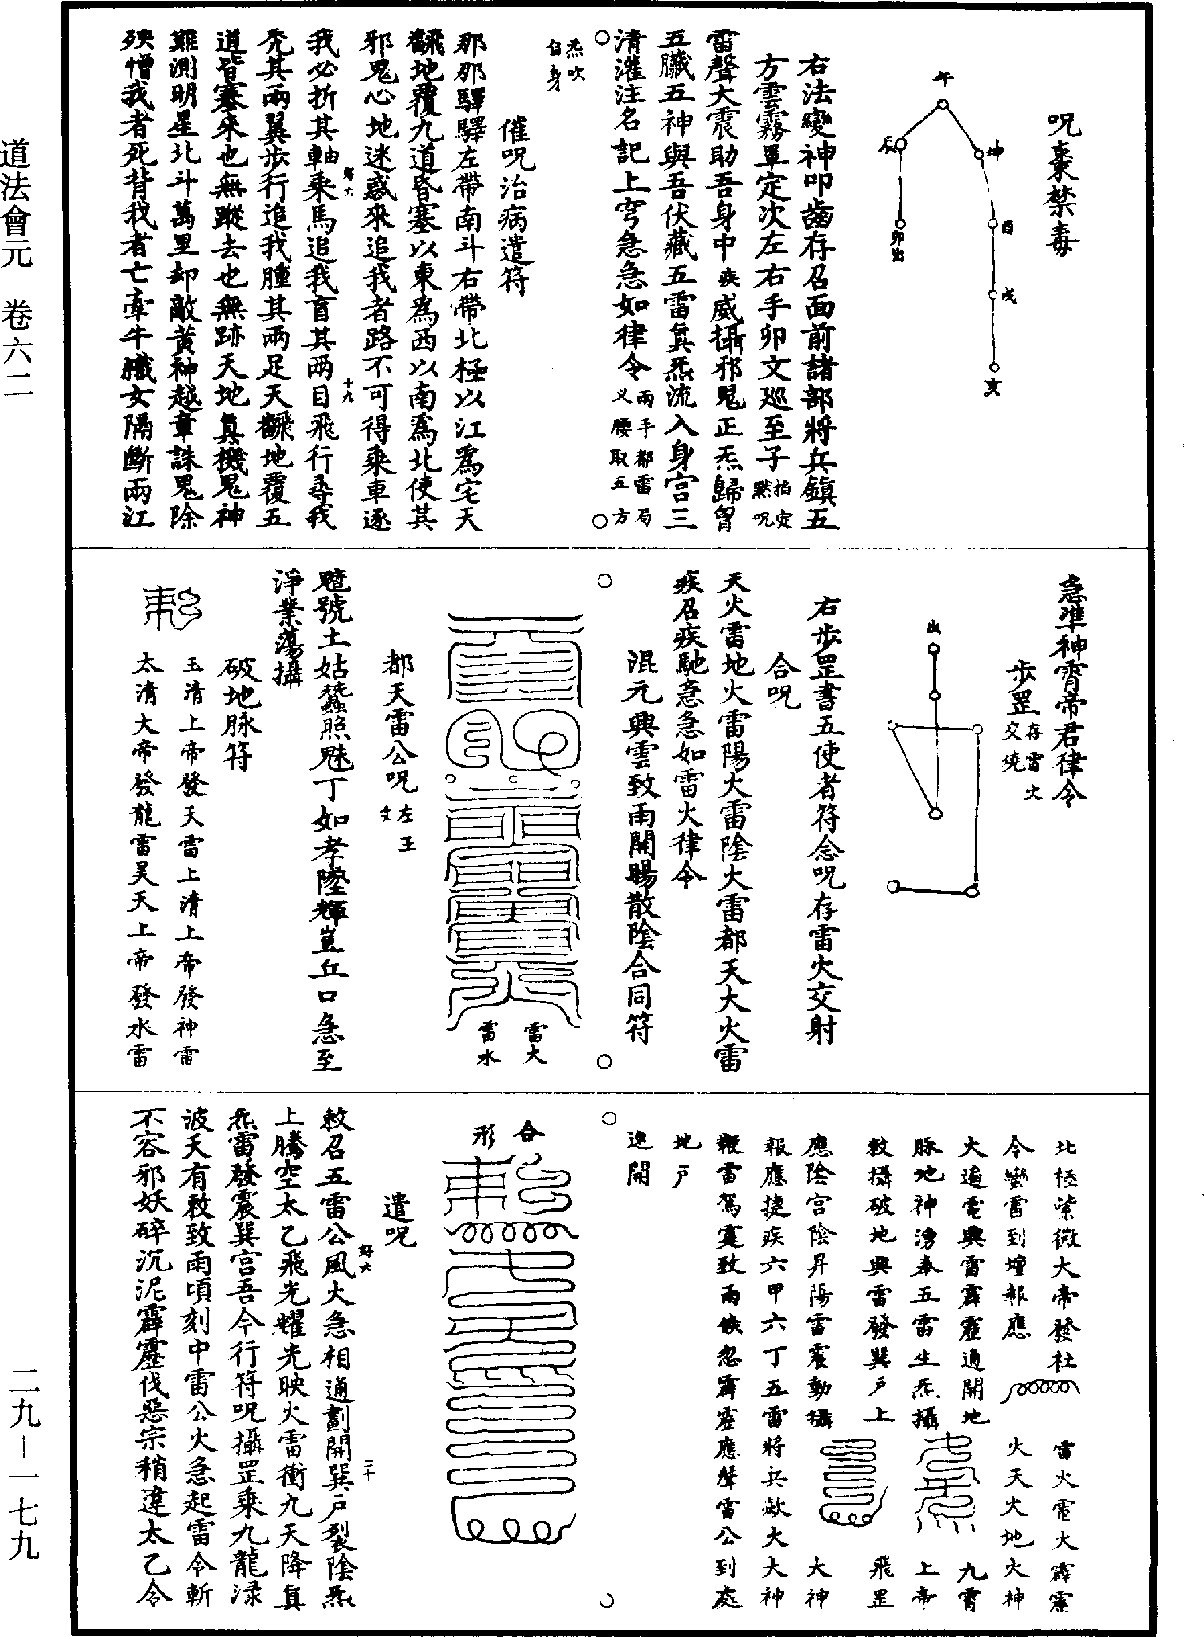 道法會元　卷六二
二九－一七九
呪棗禁毒
午
坤
酉
戌
亥
辰
卯出
右法變神叩齒存召面前諸部將兵鎮五
方雲霧罩定次左右手卯文巡至子掐定默呪
雷聲大震助吾身中疾威攝邪鬼正炁歸曾
五臟五神與吾伏藏五雷真炁流入身宮三
清灌注名記上穹急急如律令兩手都雷局叉腰取五方
炁吹
自身
催呪治病遣符
那那驛驛左帶南斗右帶北極以江為宅天
翻地覆九道昏塞以東為西以南為北使其
邪鬼心地迷惑來追我者路不可得乘車逐
我必折其軸乘馬追我盲其兩目飛行尋我
禿其兩翼步行追我腫其兩足天翻地覆五
道皆塞來也無蹤去也無跡天地真機鬼神
難測明星北斗萬里却敵黃神越章誅鬼除
殃憎我者死背我者亡牽牛織女隔斷兩江
急準神霄帝君律令
步罡存雷火交燒
出
右步罡書五使者符念呪存雷火交射
合呪
天火雷地火雷陽火雷陰火雷都天大火雷
疾召疾馳急急如雷火律令
混元興雲致雨開暘散陰合同符
雷火
雷水
都天雷公呪左玉文
號土姑蠶照魅丁如孝隆輝豈丘口急至
淨業蕩攝
破地脉符
玉清上帝發天雷上清上帝發神雷
太清大帝發龍雷昊天上帝發水雷
北極紫微大帝發社　雷火電火霹靂
令蠻雷到壇報應　火天火地火神
大通電興雷霹靂通開地　九霄
脉地神湧奉五雷生炁攝　上帝
敕攝破地興雷發巽戶上　飛罡
應陰宮陰昇陽雷震動攝　大神
報應捷疾六甲六丁五雷將兵歘火大神
鞭雷駕霆致雨倏忽霹靂應聲雷公到處
地戶
速開
合形
遣呪
敕召五雷公風火急相通劃開巽戶裂陰炁
上騰空太乙飛光耀光映火雷衝九天降真
炁雷發震巽宮吾今行符呪攝罡乘九龍淥
波天有敕致雨頃刻中雷公火急起雷令斬
不容邪妖碎沉泥霹靂伐惡宗稍違太乙令